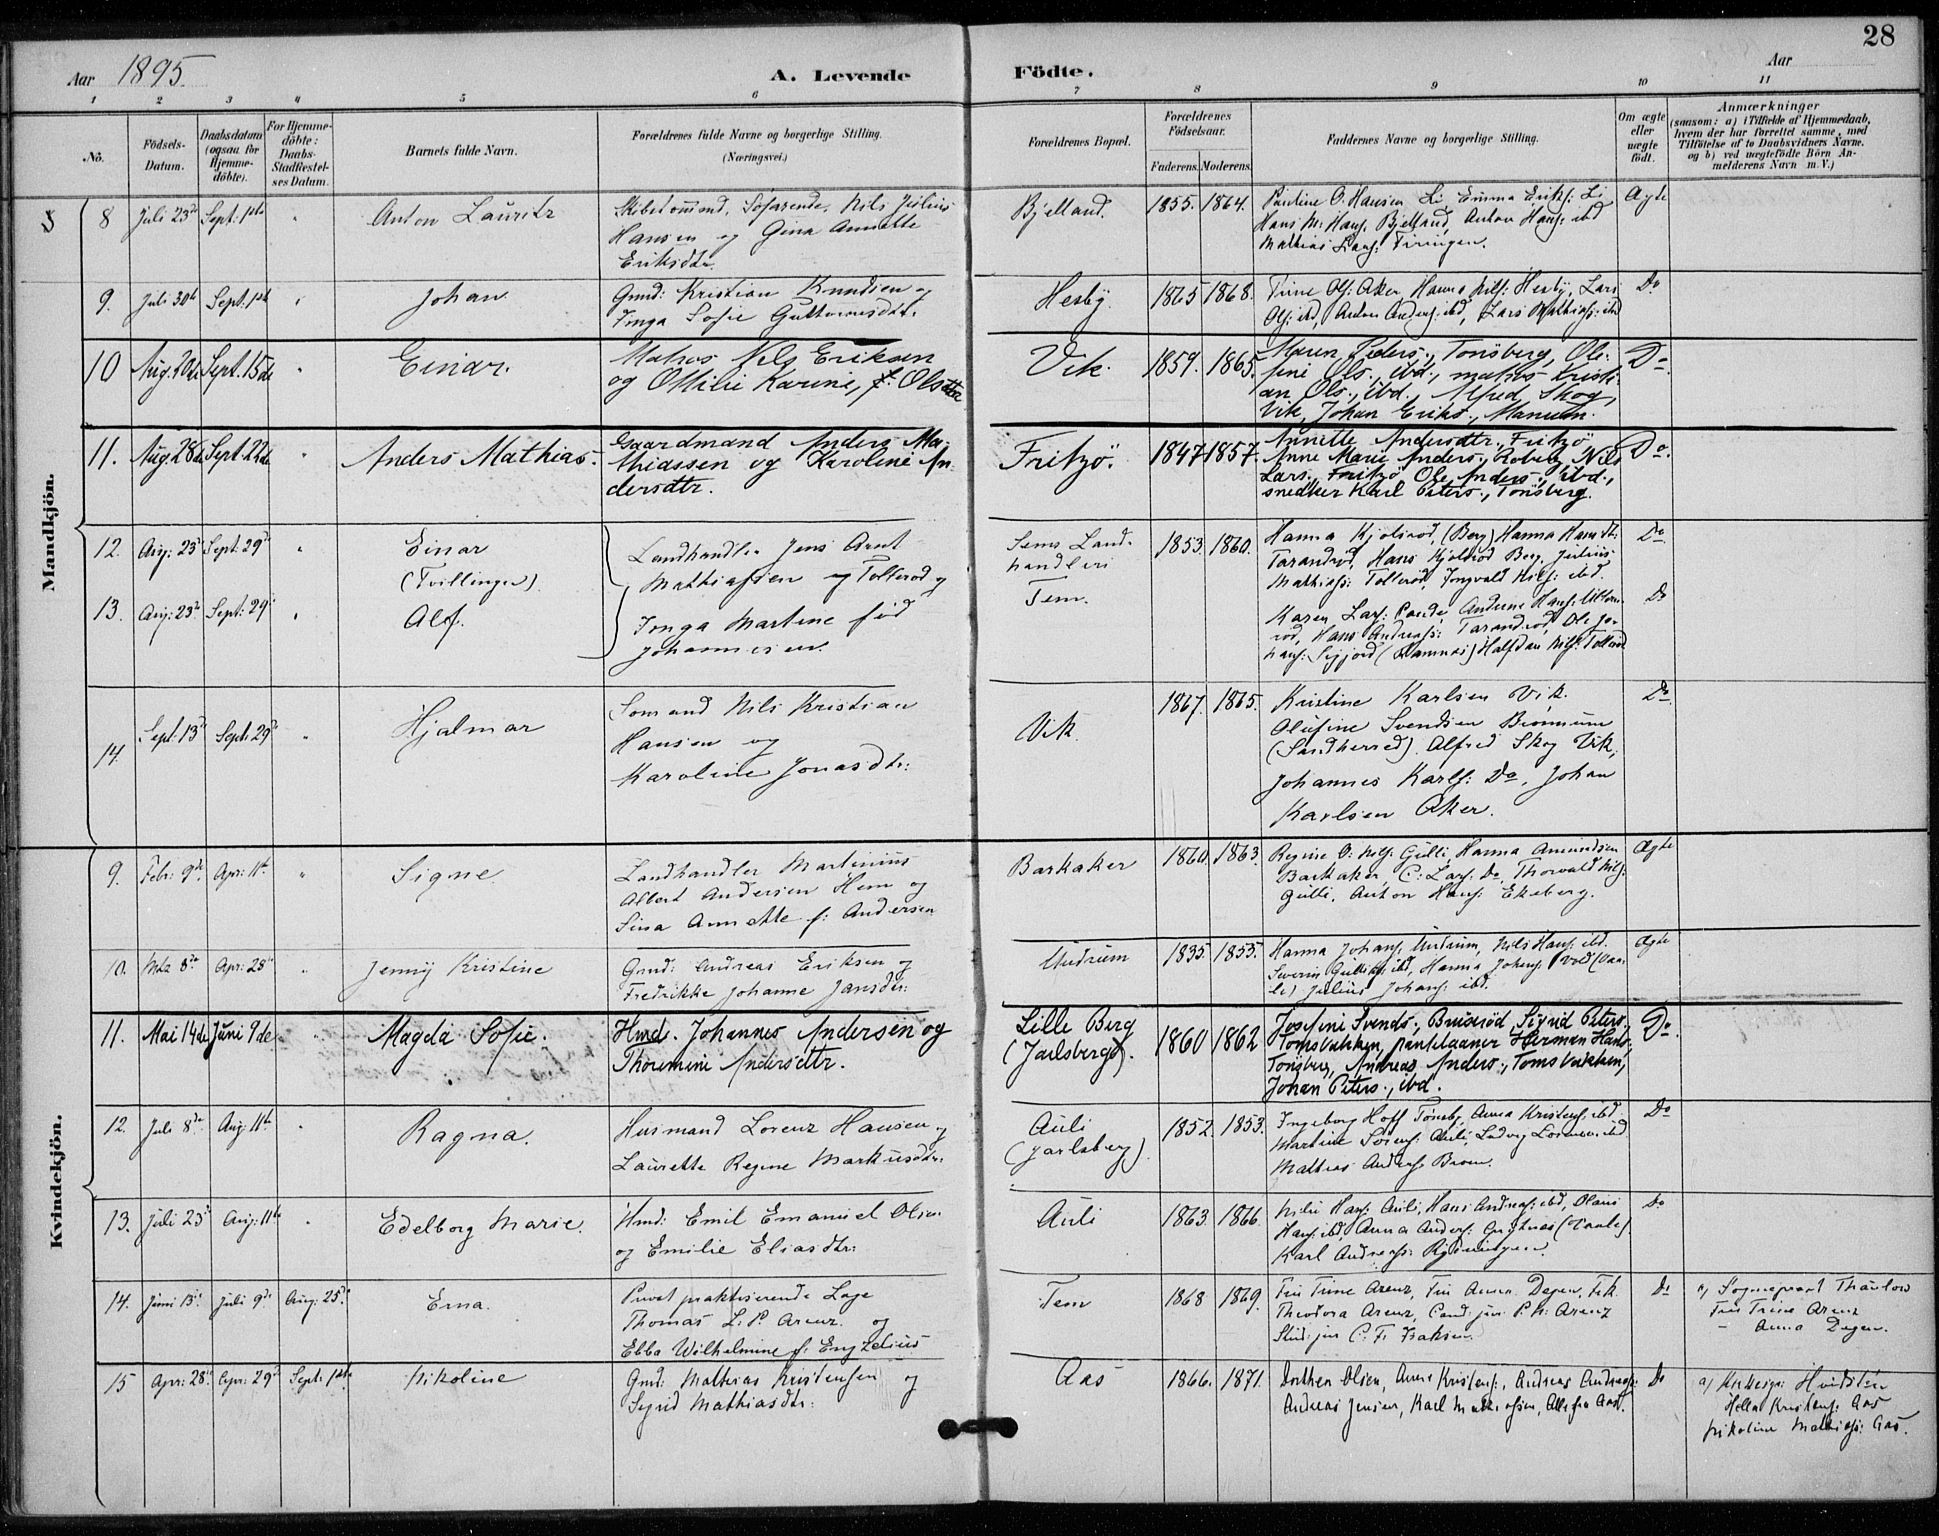 28
Aar 1895.
A. Levende Födte.
Aar
1 2 3 4 5 6 7 8 9 10 11
No.
Födsels-Datum.
Daabsdatum (ogsaa for Hjemme-döbte).
For Hjemme-döbte: Daabs-Stadfæstel-ses Datum.
Barnets fulde Navn.
Forældrenes fulde Navne og borgerlige Stilling. (Næringsvei.)
Forældrenes Bopæl.
Forældrenes Födselsaar.
Faderens. Moderens.
Faddernes Navne og borgerlige Stilling.
Om ægte eller uægte födt.
Anmærkninger
(saasom: a) i Tilfælde af Hjemmedaab, hvem der har forrettet samme, med Tilföielse af to Daabsvidners Navne. og b) ved uægtefödte Börn An-melderens Navn m. V.)
Mandkjön.
8 Juli 23de Sept. 1ste " Anton Lauritz
Nils Julius
Hansen og Gina Annette
Eriksdtr.
Bjelland. 1855. 1864.
Pauline O. Hansen Li, Emma Eriks: Li
Hans M: Hans: Bjelland, Anton Hans: ibd
Mathias
Ægte
9. Juli 30te Sept. 1ste " Johan
Gmd: Kristian Knudsen og
Inga Sofie Guttormsdtr.
Hesby. 1865 1868.
Trine Ols: Aker, Hanna Nils: Hesby, Lars
Ols: ibd, Anton Anders: ibd, Lars Mathias: ibd
Do
10 Aug. 20de Sept. 15de " Einar.
Matros Nils Eriksen
og Ottilie Karine, f. Olsdtter
Vik. 1859. 1865.
Maren Peders., Tönsberg, Ole-
fine Ols., ibd., matros Kristi-
an Ols., ibd., Alfred Skog,
Vik, Johan Eriks.,
Do
11. Aug. 28de Sept. 22de " Anders Mathias.
Gaardmand Anders Ma-
thiassen og Karoline An-
dersdtr.
Fritzö. 1847 1857.
Annette Andersdtr., Fritzö
Anne Marie Anders., Nils
Lars., Fritzö Ole Anders., ibd.,
snedker Karl Peters., Tönsberg.
Do.
12. Aug: 23de Sept: 29de " Einar
(Tvillinger)
13. Aug: 23de Sept: 29de " Alf.
Landhandler Jens Arnt
Mathiassen og Tollerød og
Inga Martine fød
Johannesen.
Sems Land-
handleri
Tem.
1853. 1860.
Hanna Kjolsrod, (Berg) Hanna
Tarandrød, Hans Kjolsrød Berg, Julius
Mathias: Tollerød, Ingvald Nils: ibd.
Karen Lars: Andrine Hans:
rød, Hans Andreas: Tarandrød, Ole Jo-
hans: (Ramnes) Halfdan Nils: Tollerød
Do
Do
14. Sept: 13de Sept: 29de " Hjalmar
Sømand Nils Kristian
Hansen og
Karoline Jonasdtr:
Vik. 1867. 1865.
Kristine Karlsen Vik.
Olufine Svendsen Brunnum
(Sandherred). Alfred Skog Vik,
Johannes Karls: Do, Johan
Karlsen Aker.
Do
Kvindekjön.
9. Febr: 9de Apr: 11te " Signe
Landhandler Martinius
Albert Andersen Hem og
Sina Annette f: Andersen
Barkaker 1860. 1863.
Regine O: Nils: Gulli, Hanna Amundsen
Barkaker, C: Lars: Do, Thorvald Nils:
Gulli, Anton Hans: Ekeberg.
Ægte
10. Mts 8de Apr: 28de " Jenny Kristine
Gmd: Andreas Eriksen og
Fredrikke Johanne Jansdtr:
Undrum 1835. 1853.
Hanna Johans: Undrum, Nils Hans: ibd.
Severin Gulliks: ibd, Hanna Johans: Vold (Vaa-
le) Julius Johans: ibd.
Ægte
11. Mai 14de Juni 9de " Magda Sofie.
Hmd. Johannes Andersen og
Thoremine Andersdtr.
Lille Berg
(Jarlsberg).
1860 1862
Josefine Svends., Bruserød, Sigrid Peters.,
Tomsbakken, pantelaaner Herman Hans.,
Tönsberg, Andreas Anders., Tomsbakken,
Johan Peters., ibd.
Do.
12. Juli 8de Aug. 11te " Ragna.
Husmand Lorenz Hansen og
Laurette Regine Markusdtr.
Auli
(Jarlsberg).
1852. 1853.
Ingeborg Hoff Tønsbg, Anna Kristens: ibd.
Martine Sørens: Auli, Ludvig Lorensen ibd
Mathias Anders:
Do
13. Juli 23de Aug: 11te " Edelborg Marie.
Hmd: Emil Emanuel Olsen
og Emilie Eliasdtr:
Auli 1863 1866.
Nilu Hans: Auli, Hans Andreas: ibd, Olaus
Hans: ibd, Anna Anders: (Vaale)
Karl Andreas:
Do
14. Juni 13de Juli 9de Aug: 25de Erna.
Privat praktiserende Læge
Thomas L. P. Arenz. og
Ebba Wilhelmine f. Engzelius
Tem 1868 1869.
Fru Trine Arenz, Fru Anna Degen, Frk.
Theodora Arenz, Cand: jur: P. H: Arenz
Stud: jur C. F. Isaksen
Do
a) Sogneprest Thaulow
Fru Trine Arenz
– Anna Degen.
15 Apr: 28de Apr: 29de Sept: 1ste Nikoline
Gmd: Mathias Kristensen og
Sigrid Mathiasdtr:
Aas 1866. 1871.
Dorthea Olsen, Anne Kristens:, Andreas Andreas:
Andreas Jensen, Karl Mathiassen, Alle fra Aas.
Do
a)
Helle Kristens: Aas
Nikoline Mathias: Aas.